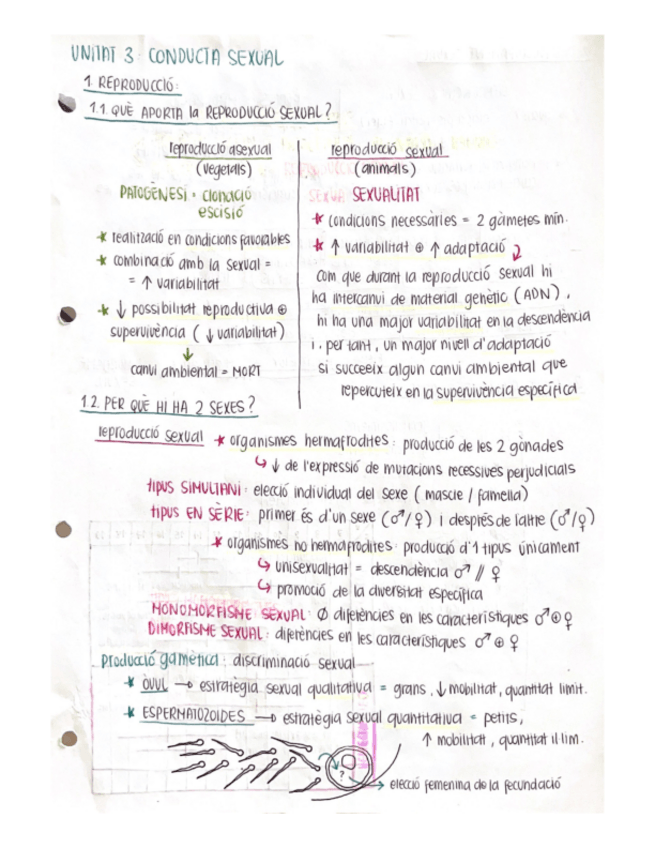 UNITAT 3: CONDUCTA SEXUAL
1. REPRODUCCIÓ:
1.1. QUÈ APORTA la REPRODUCCIÓ SEXUAL?
reproducció asexual
(vegetals)
PATOGÈNESI = clonació
escisió
* realització en condicions favorables
* combinació amb la sexual =
= ↑ variabilitat
* ↓ possibilitat reproductiva ⊕
supervivència (↓ variabilitat)
↓
canvi ambiental = MORT
reproducció sexual
(animals)
SEXUALITAT
* condicions necessàries = 2 gàmetes mín.
* ↑ variabilitat ⊕ ↑ adaptació
Com que durant la reproducció sexual hi
ha intercanvi de material genètic (ADN),
hi ha una major variabilitat en la descendència
i, per tant, un major nivell d'adaptació
si succeeix algun canvi ambiental que
repercuteix en la supervivència específica
1.2. PER QUÈ HI HA 2 SEXES?
reproducció sexual * organismes hermafrodites: producció de les 2 gònades
↳ ↓ de l'expressió de mutacions recessives perjudicials
tipus SIMULTANI: elecció individual del sexe (mascle / famella)
tipus EN SÈRIE: primer és d'un sexe (♂/♀) i després de l'altre (♂/♀)
* organismes no hermafrodites: producció d'1 tipus únicament
↳ unisexualitat = descendència ♂ // ♀
↳ promoció de la diversitat específica
MONOMORFISME SEXUAL: Ø diferències en les característiques ♂ ⊕ ♀
DIMORFISME SEXUAL: diferències en les característiques ♂ ⊕ ♀
Producció gamètica: discriminació sexual
* ÒVUL → estratègia sexual qualitativa = grans, ↓ mobilitat, quantitat limit.
* ESPERMATOZOIDES → estratègia sexual quantitativa = petits,
↑ mobilitat, quantitat il·lim.
?
→ elecció femenina de la fecundació